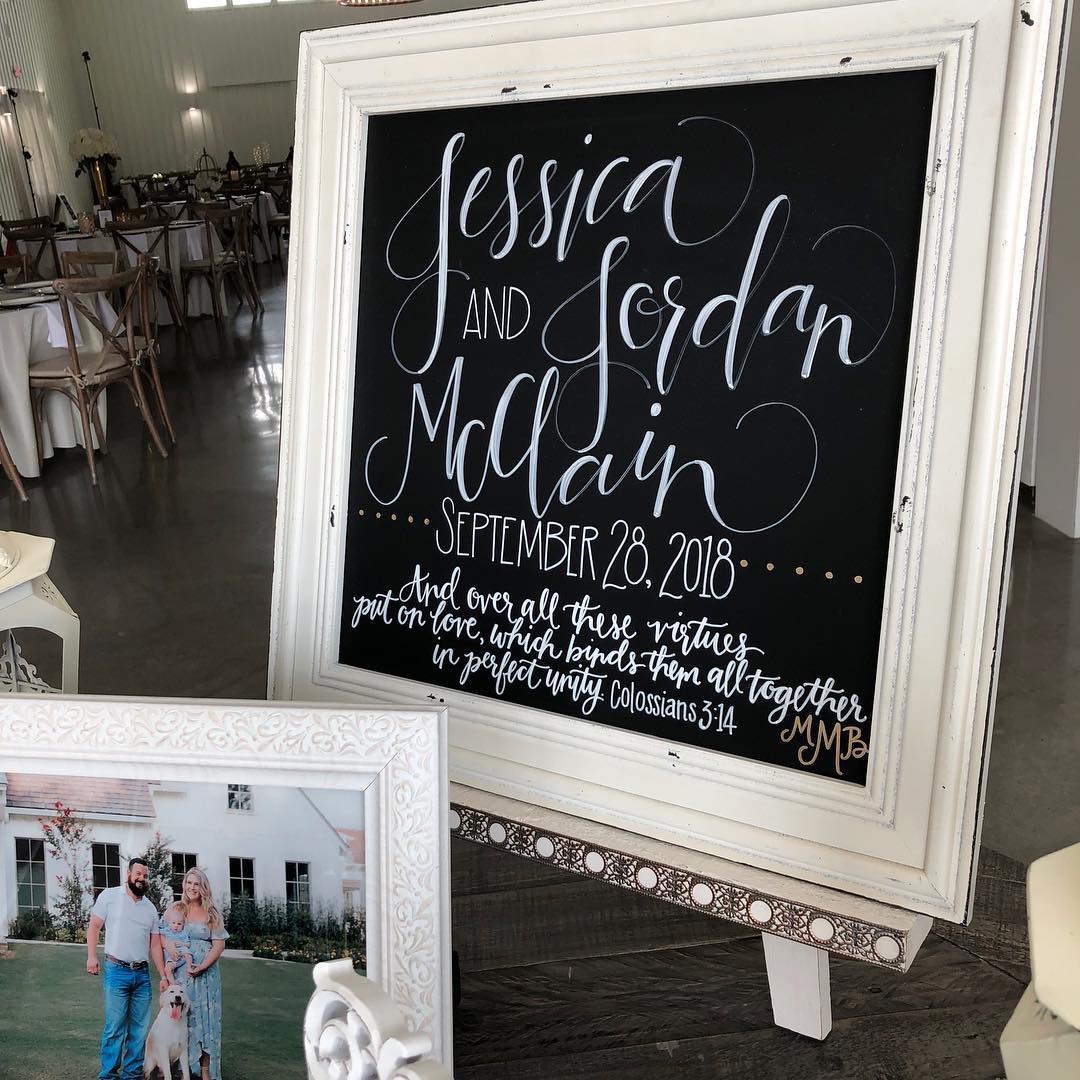 Jessica
AND Jordan
McClain
SEPTEMBER 28, 2018
And over all these virtues
put on love, which binds them all together
in perfect unity. Colossians 3:14
MMB